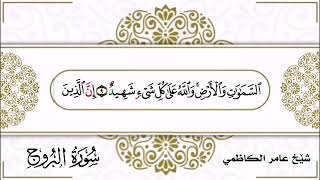 السَّمَٰوَٰتِ وَالْأَرْضِ ۚ وَاللَّهُ عَلَىٰ كُلِّ شَيْءٍ شَهِيدٌ ٩ إِنَّ الَّذِينَ
سُورَةُ البُرُوج
شيخ عامر الكاظمي